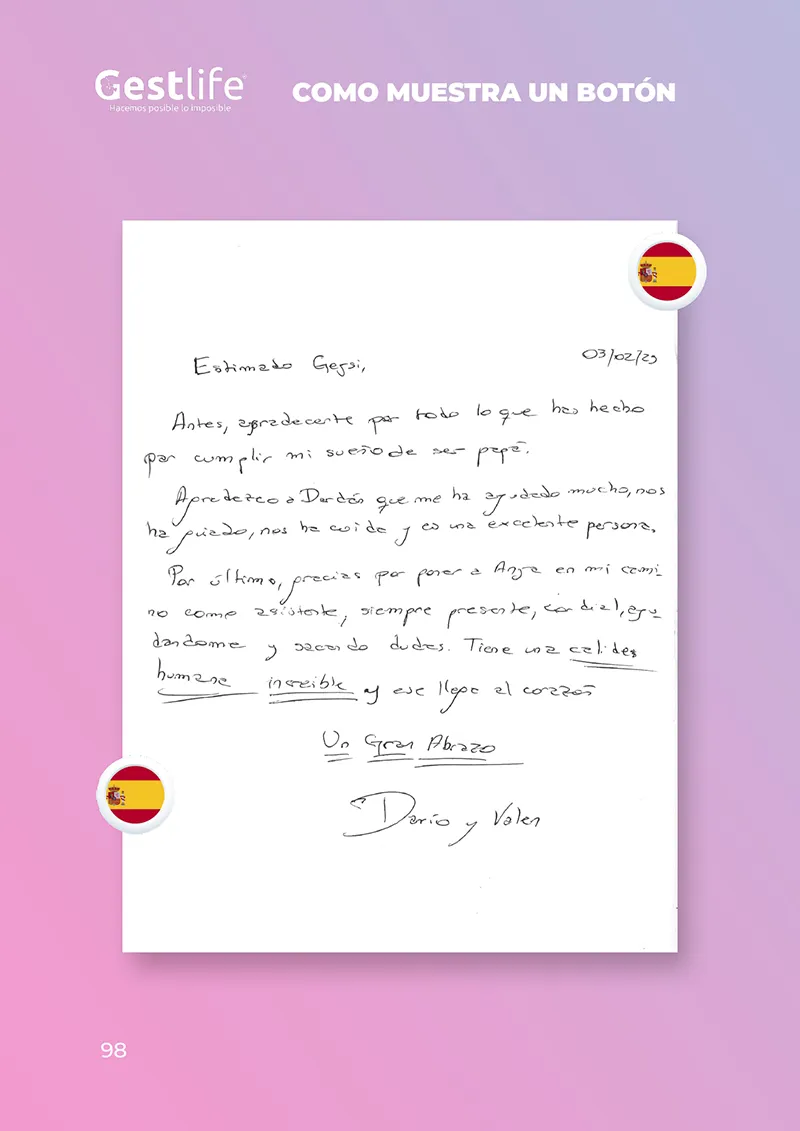 Gestlife
Hacemos posible lo imposible
COMO MUESTRA UN BOTÓN
03/02/23
Estimado Gersi,
Antes, agradecerte por todo lo que has hecho
por cumplir mi sueño de ser papá.
Agradezco a Dardán que me ha ayudado mucho, nos
ha guiado, nos ha cuida y es una excelente persona.
Por último, gracias por poner a Anya en mi cami-
no como asistente, siempre presente, cordial, ayu-
dandome y sacando dudas. Tiene una calidez
humana increible y ese llego al corazón
Un Gran Abrazo
Darío y Valen
98